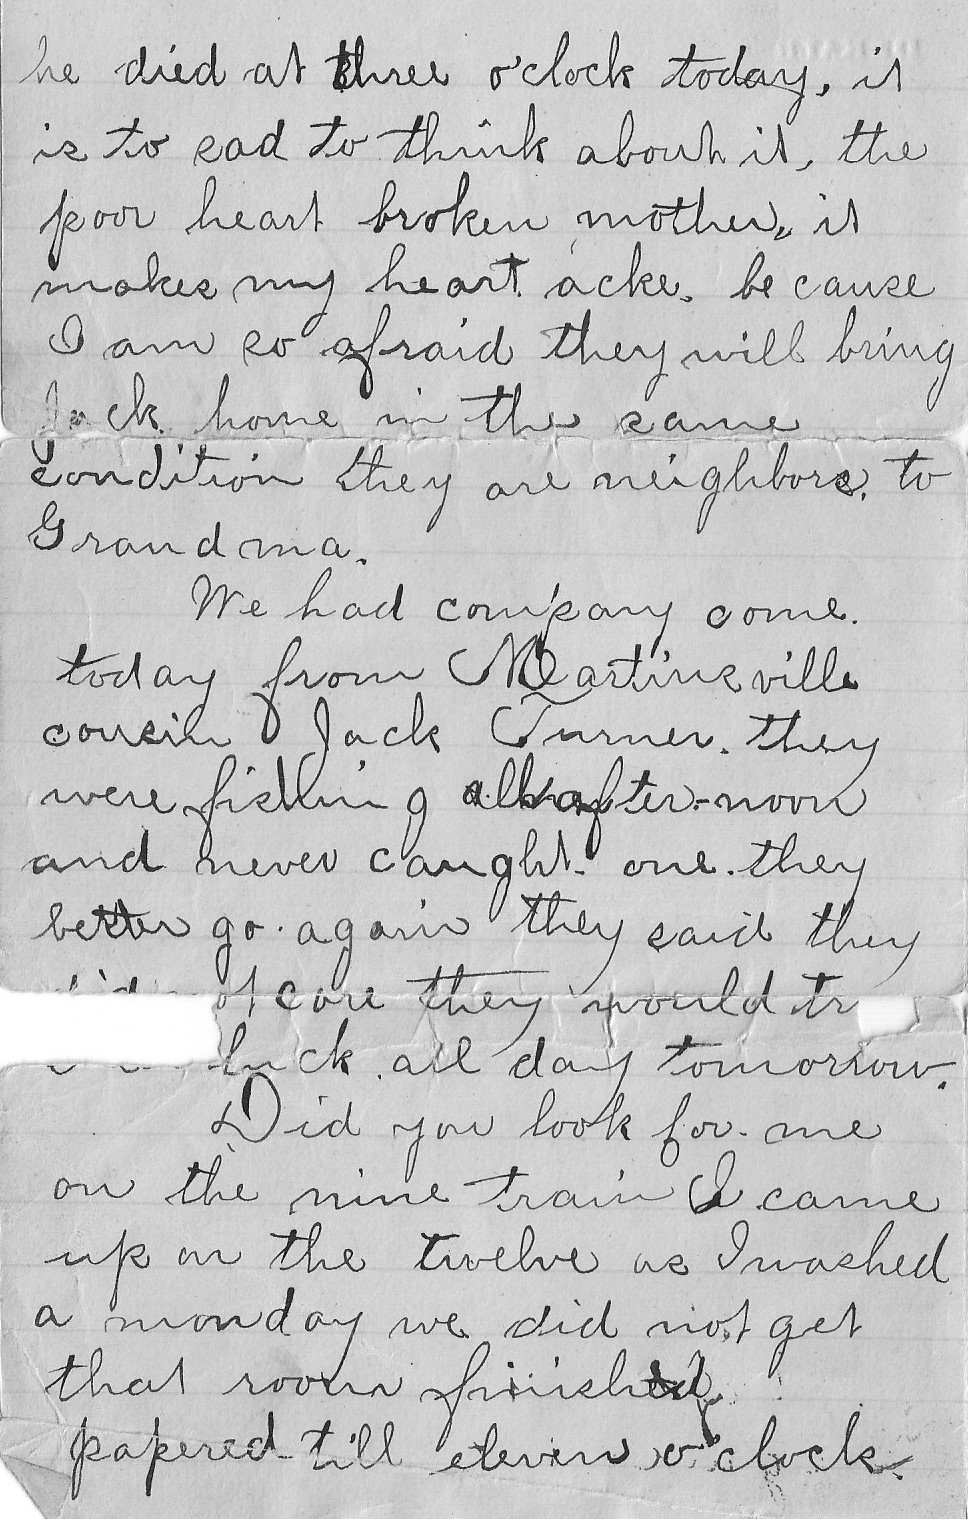 he died at three o'clock today, it
is to sad to think about it, the
poor heart broken mother, it
makes my heart acke. because
I am so afraid they will bring
Jack home in the same
condition they are neighbors. to
Grandma.
We had company come.
today from Martinsville
cousin Jack Turner. they
were fishing all after-noon
and never caught. one. they
better go. again they said they
did not care they would
luck. all day tomorrow.
Did you look for. me
on the nine train I came
up on the twelve as I washed
a monday we did not get
that room finished
papered till eleven o'clock.